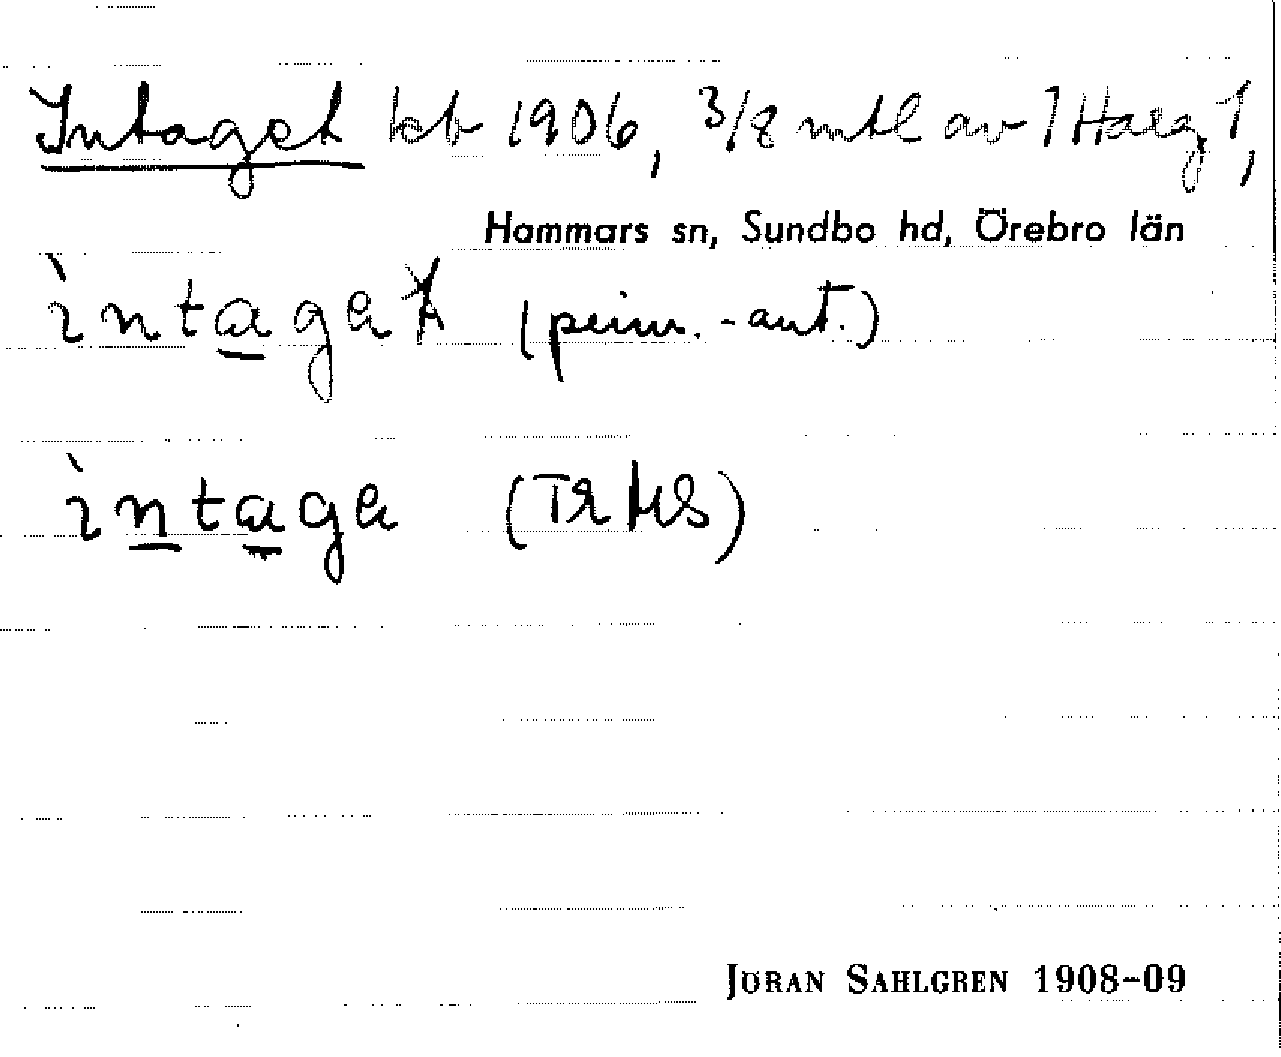 Intaget kb 1906, 3/8 mtl av 1 Harg 1,
Hammars sn, Sundbo hd, Örebro län
ìntaga (prim.-ant.)
ìntaga (Tr HS)
JÖRAN SAHLGREN 1908–09